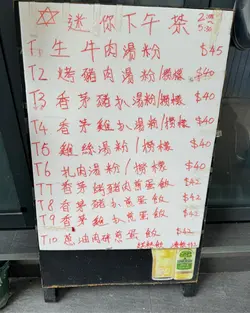 迷你下午茶
T1 生牛肉湯粉 $45
T2 烤豬肉湯粉/撈檬 $40
T3 香茅豬扒湯粉/撈檬 $40
T4 香茅雞扒湯粉/撈檬 $40
T5 雞絲湯粉/撈檬 $40
T6 扎肉湯粉/撈檬 $40
T7 香茅豬肉煎蛋飯 $42
T8 香茅豬扒煎蛋飯 $42
T9 香茅雞扒煎蛋飯 $42
T10 蔥油肉餅煎蛋飯 $42